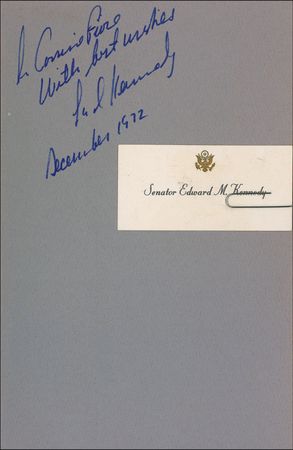 With best wishes
Ted Kennedy
December 1972
Senator Edward M. Kennedy